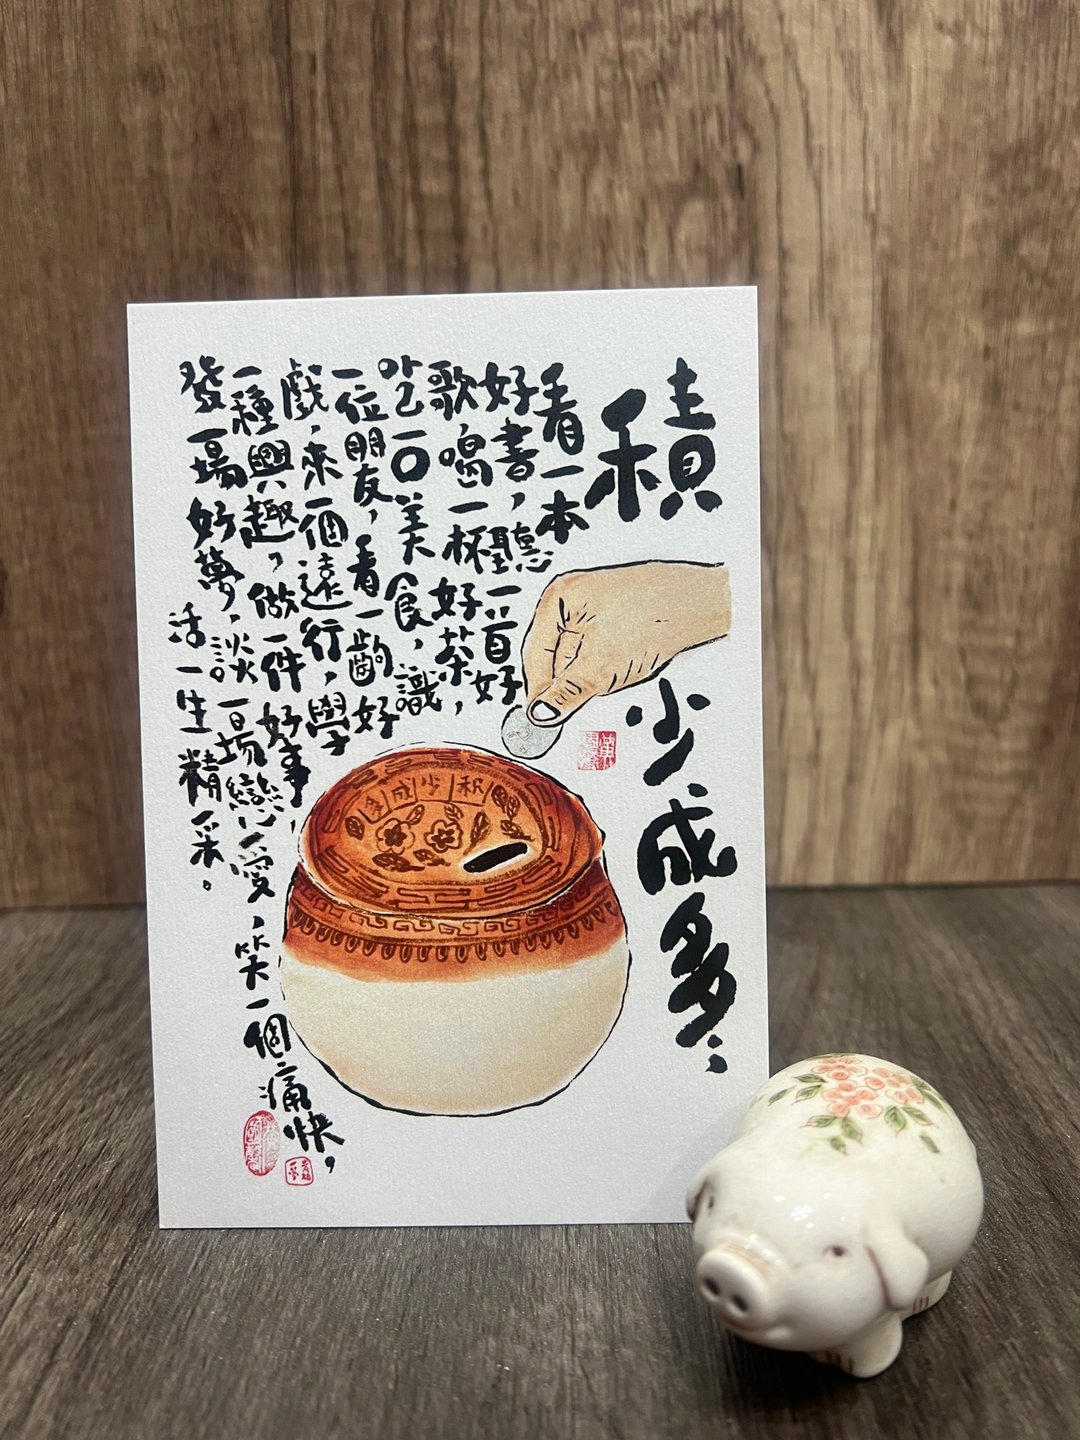 積少成多：
看一本
好書，聽一首好
歌，喝一杯好茶，
吃一口美食，識
一位朋友，看一齣好
戲，來一個遠行，學
一種興趣，做一件好事，
發一場好夢，談一場戀愛，笑一個痛快，
活一生精采。
积少成多